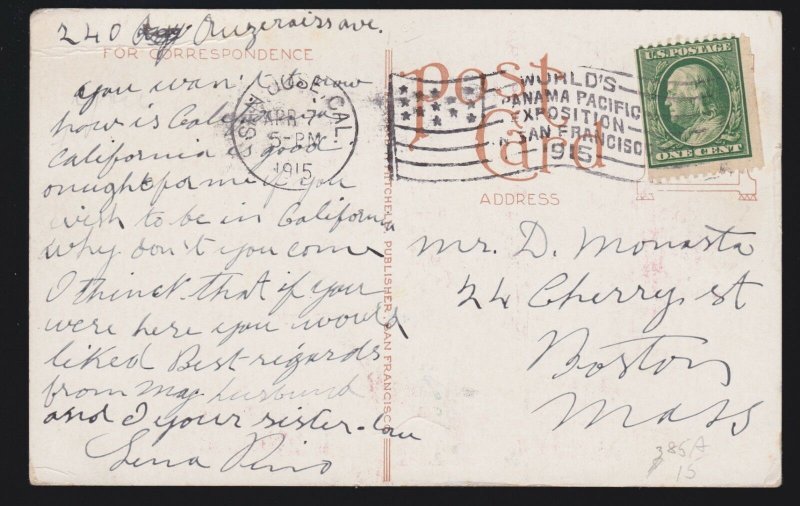 240 Auzerais ave.
FOR CORRESPONDENCE
you wan't to know
how is California
California is good
onught for me if you
wish to be in California
why don't you come
I think that if you
were here you would
liked Best regards
from my husband
and I your sister-law
Lena Pino
SAN JOSE, CAL.
APR 7
5-PM
1915
MITCHELL, PUBLISHER, SAN FRANCISCO
Post
Card
WORLD'S
PANAMA PACIFIC
EXPOSITION
IN SAN FRANCISCO
1915
U.S. POSTAGE
ONE CENT
ADDRESS
Mr. D. Monasta
24 Cherry st
Boston
Mass
385A
15